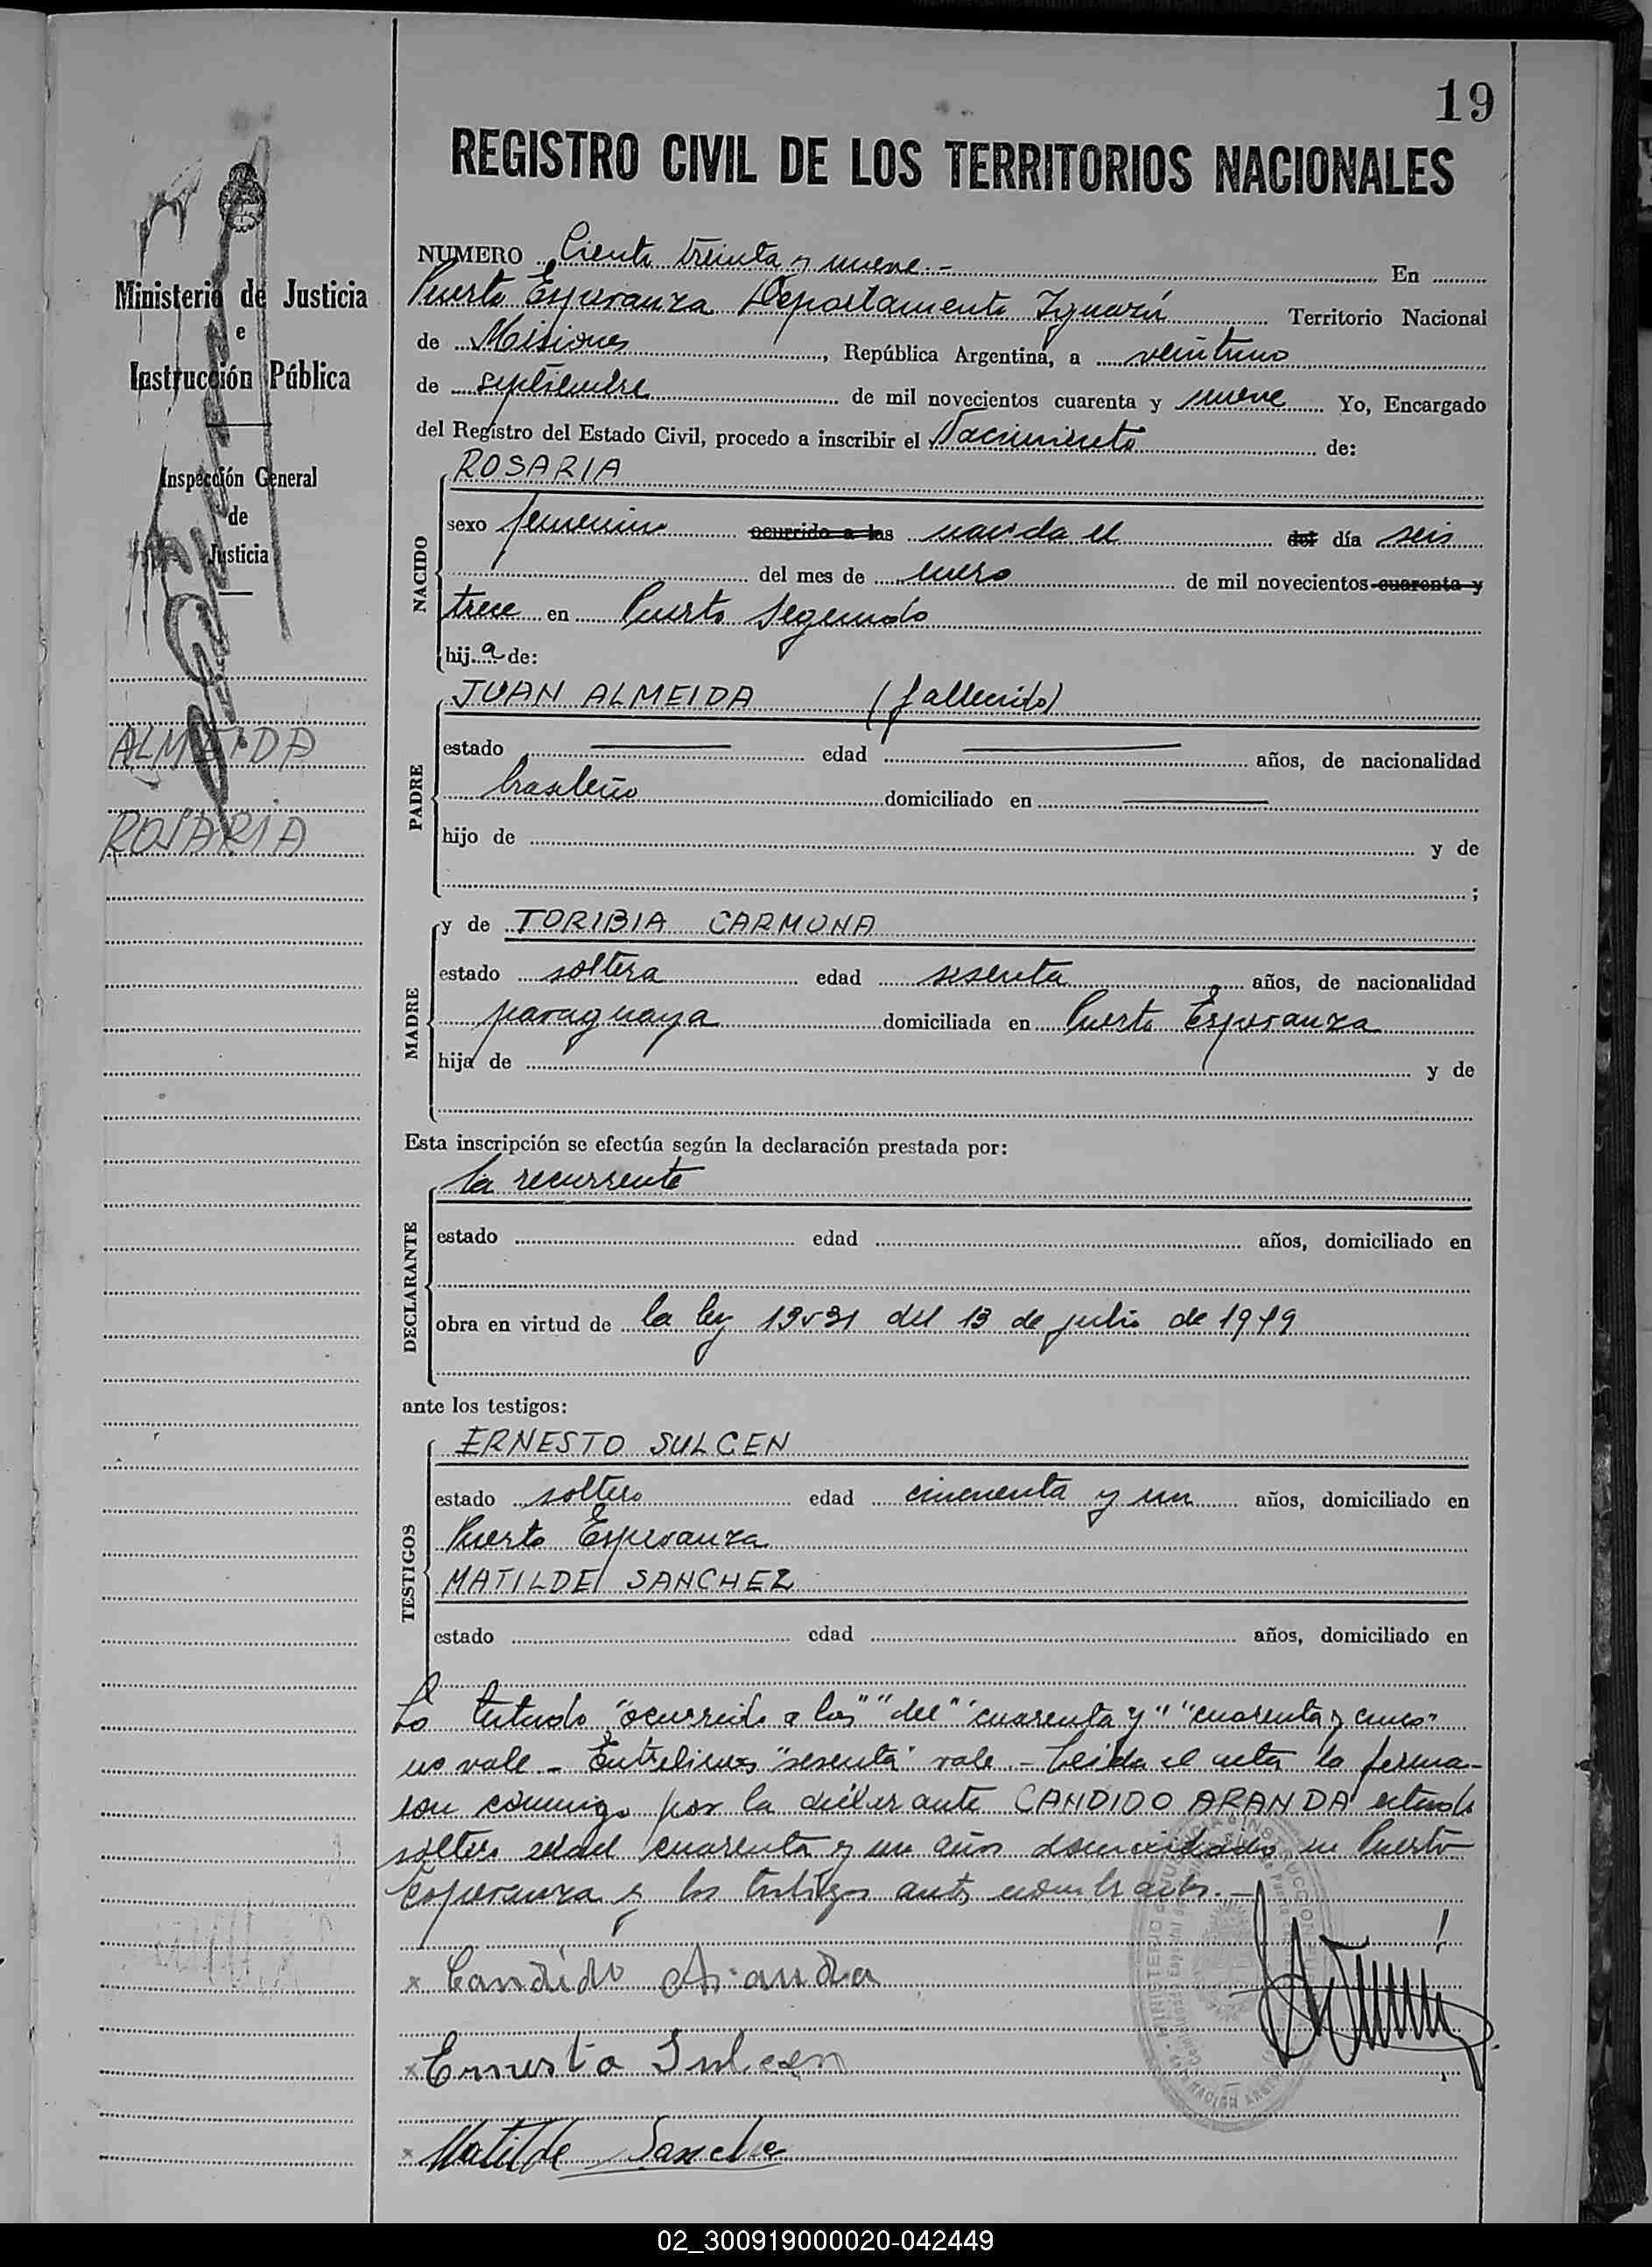 19
REGISTRO CIVIL DE LOS TERRITORIOS NACIONALES
Ministerio de Justicia
e
Instrucción Pública
Inspección General
de
Justicia
ALMEIDA
ROSARIA
NUMERO Ciento treinta y nueve.- En
Puerto Esperanza Departamento Iguazú Territorio Nacional
de Misiones, República Argentina, a veintiuno
de septiembre de mil novecientos cuarenta y nueve Yo, Encargado
del Registro del Estado Civil, procedo a inscribir el Nacimiento de:
NACIDO
ROSARIA
sexo femenino ocurrido a las nacida el del día seis
del mes de enero de mil novecientos cuarenta y
trece en Puerto Segundo
hija de:
PADRE
JUAN ALMEIDA (fallecido)
estado edad años, de nacionalidad
brasileño domiciliado en
hijo de y de
;
MADRE
y de TORIBIA CARMONA
estado soltera edad sesenta años, de nacionalidad
paraguaya domiciliada en Puerto Esperanza
hija de y de
Esta inscripción se efectúa según la declaración prestada por:
DECLARANTE
la recurrente
estado edad años, domiciliado en
obra en virtud de la ley 13531 del 13 de julio de 1949
ante los testigos:
TESTIGOS
ERNESTO SULCEN
estado soltero edad cincuenta y un años, domiciliado en
Puerto Esperanza
MATILDE SANCHEZ
estado edad años, domiciliado en
Lo testado "ocurrido a las" "del" "cuarenta y" "cuarenta y cinco"
no vale - Entrelineas "sesenta" vale - Leida el acta la firma-
ron conmigo por la declarante CANDIDO ARANDA estado
soltero edad cuarenta y un años domiciliado en Puerto
Esperanza y los testigos antes nombrados.-
x Candido Aranda
x Ernesto Sulcen
x Matilde Sanche
02_300919000020-042449